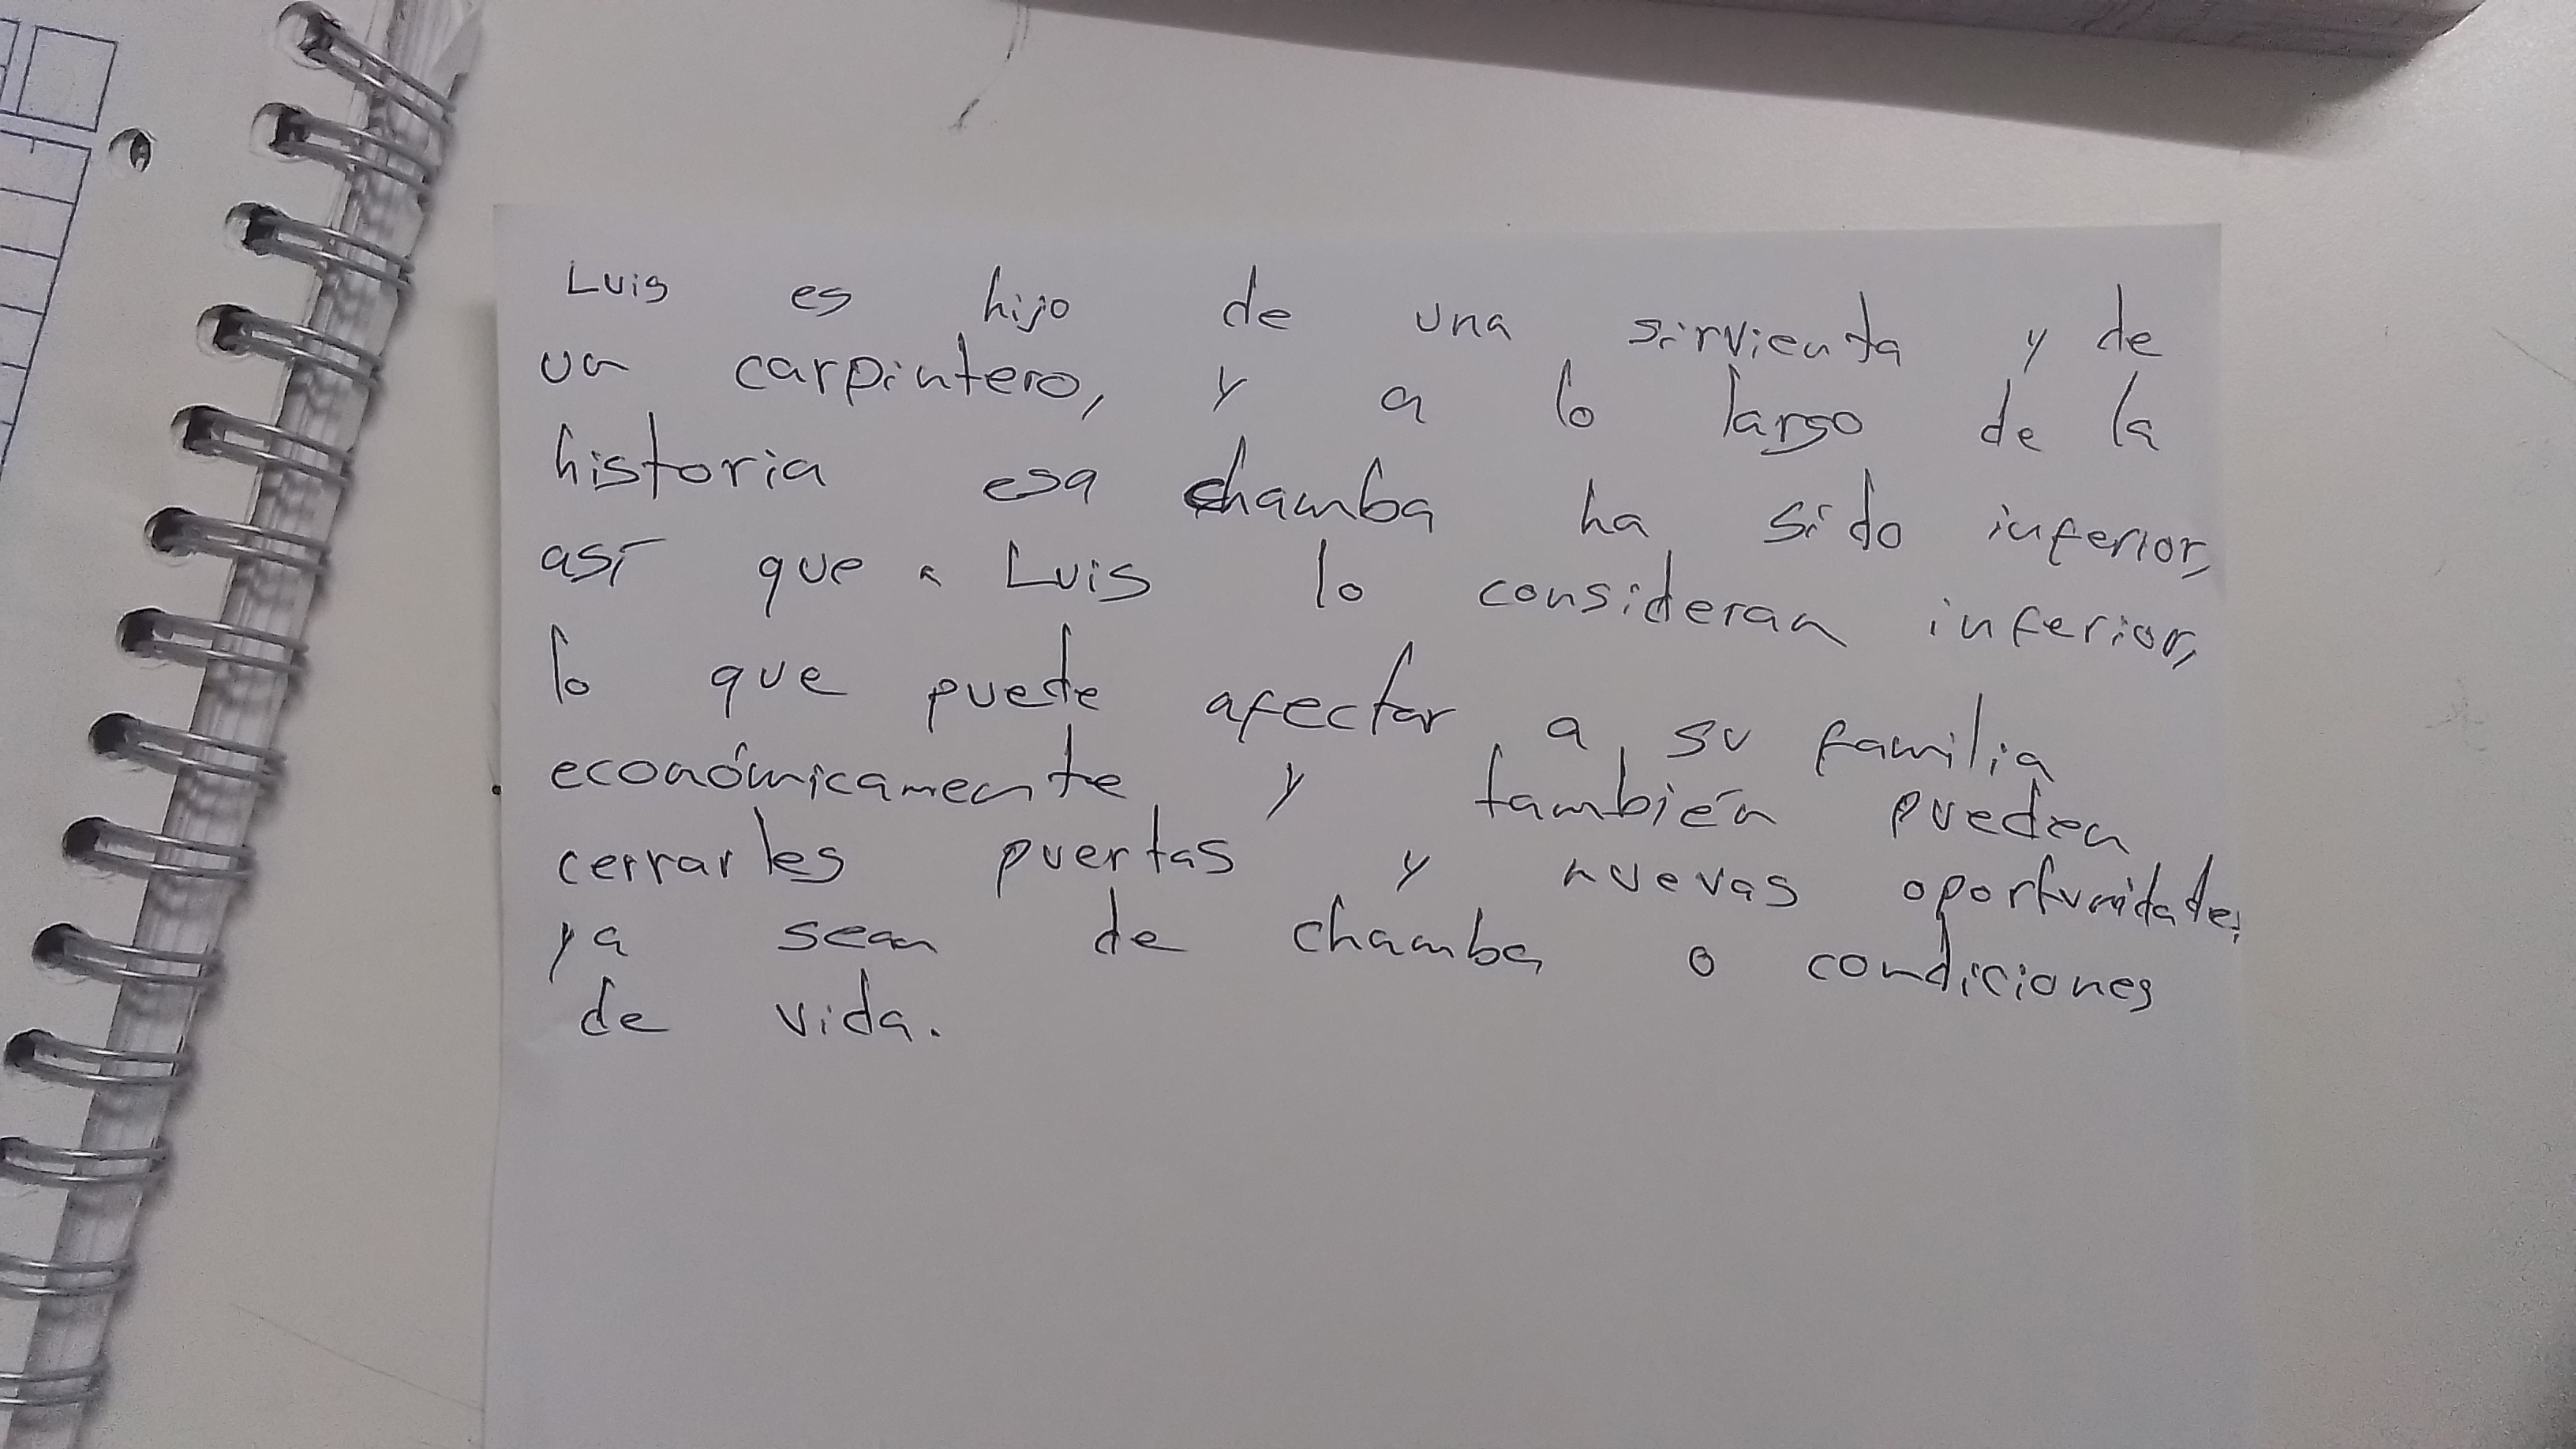 Luis es hijo de una sirvienta y de
un carpintero, y a lo largo de la
historia esa chamba ha sido inferior,
así que a Luis lo consideran inferior,
lo que puede afectar a su familia
económicamente y también pueden
cerrarles puertas y nuevas oportunidades
ya sean de chamba o condiciones
de vida.